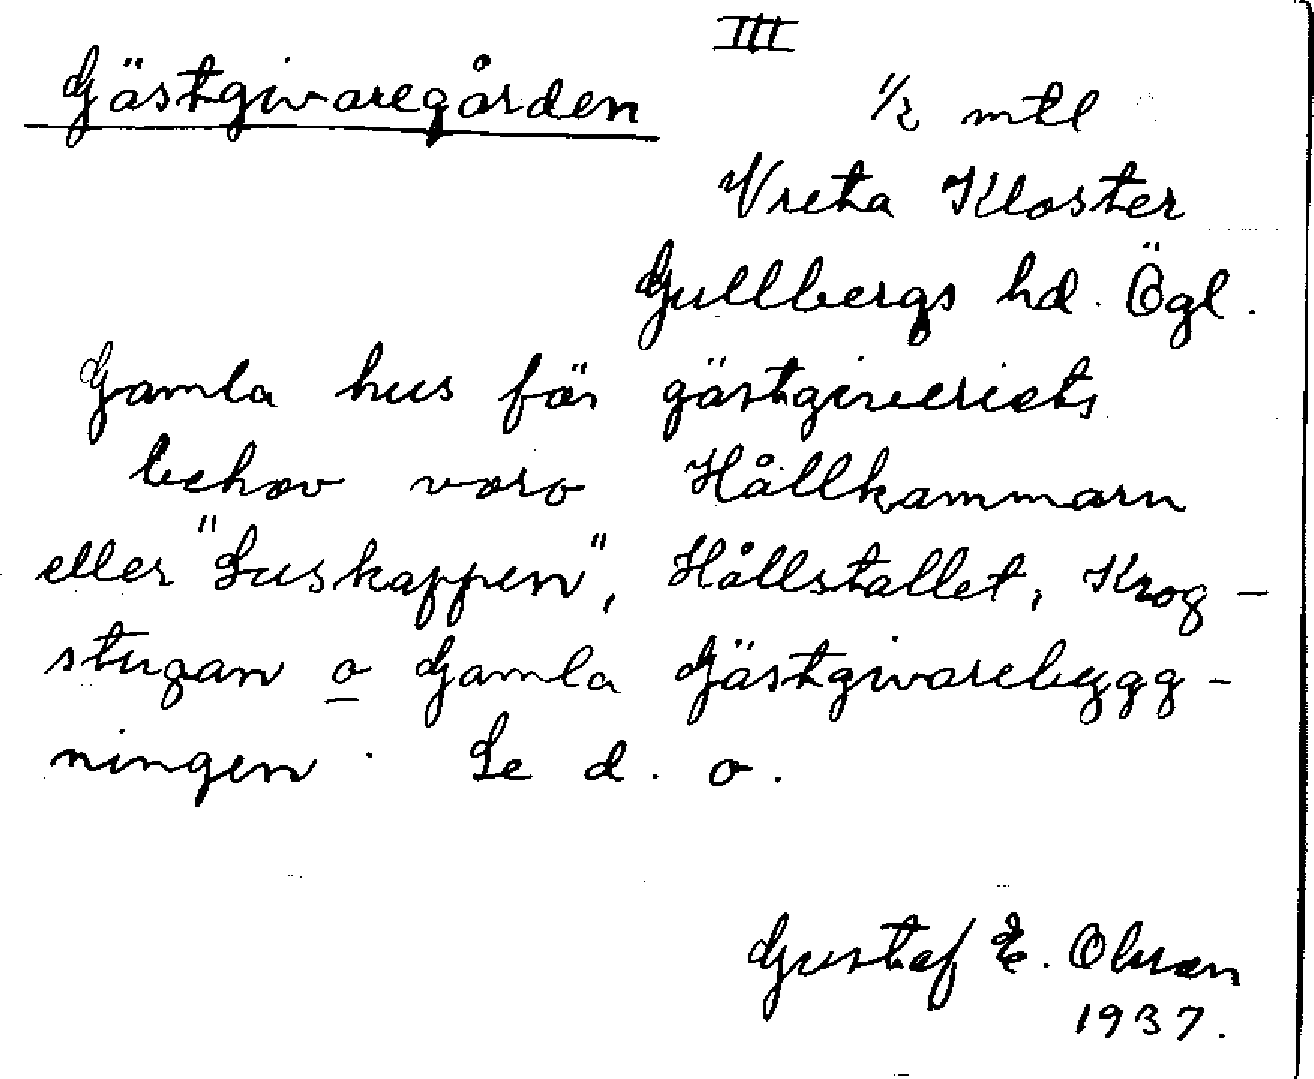 III
Gästgivaregården
1/2 mtl
Vreta Kloster
Gullbergs hd. Ögl.
Gamla hus för gästgiveriets
behov voro Hållkammarn
eller "Luskappen", Hållstallet, Krog-
stugan o Gamla Gästgivarebygg-
ningen. Se d. o.
Gustaf E. Olsson
1937.